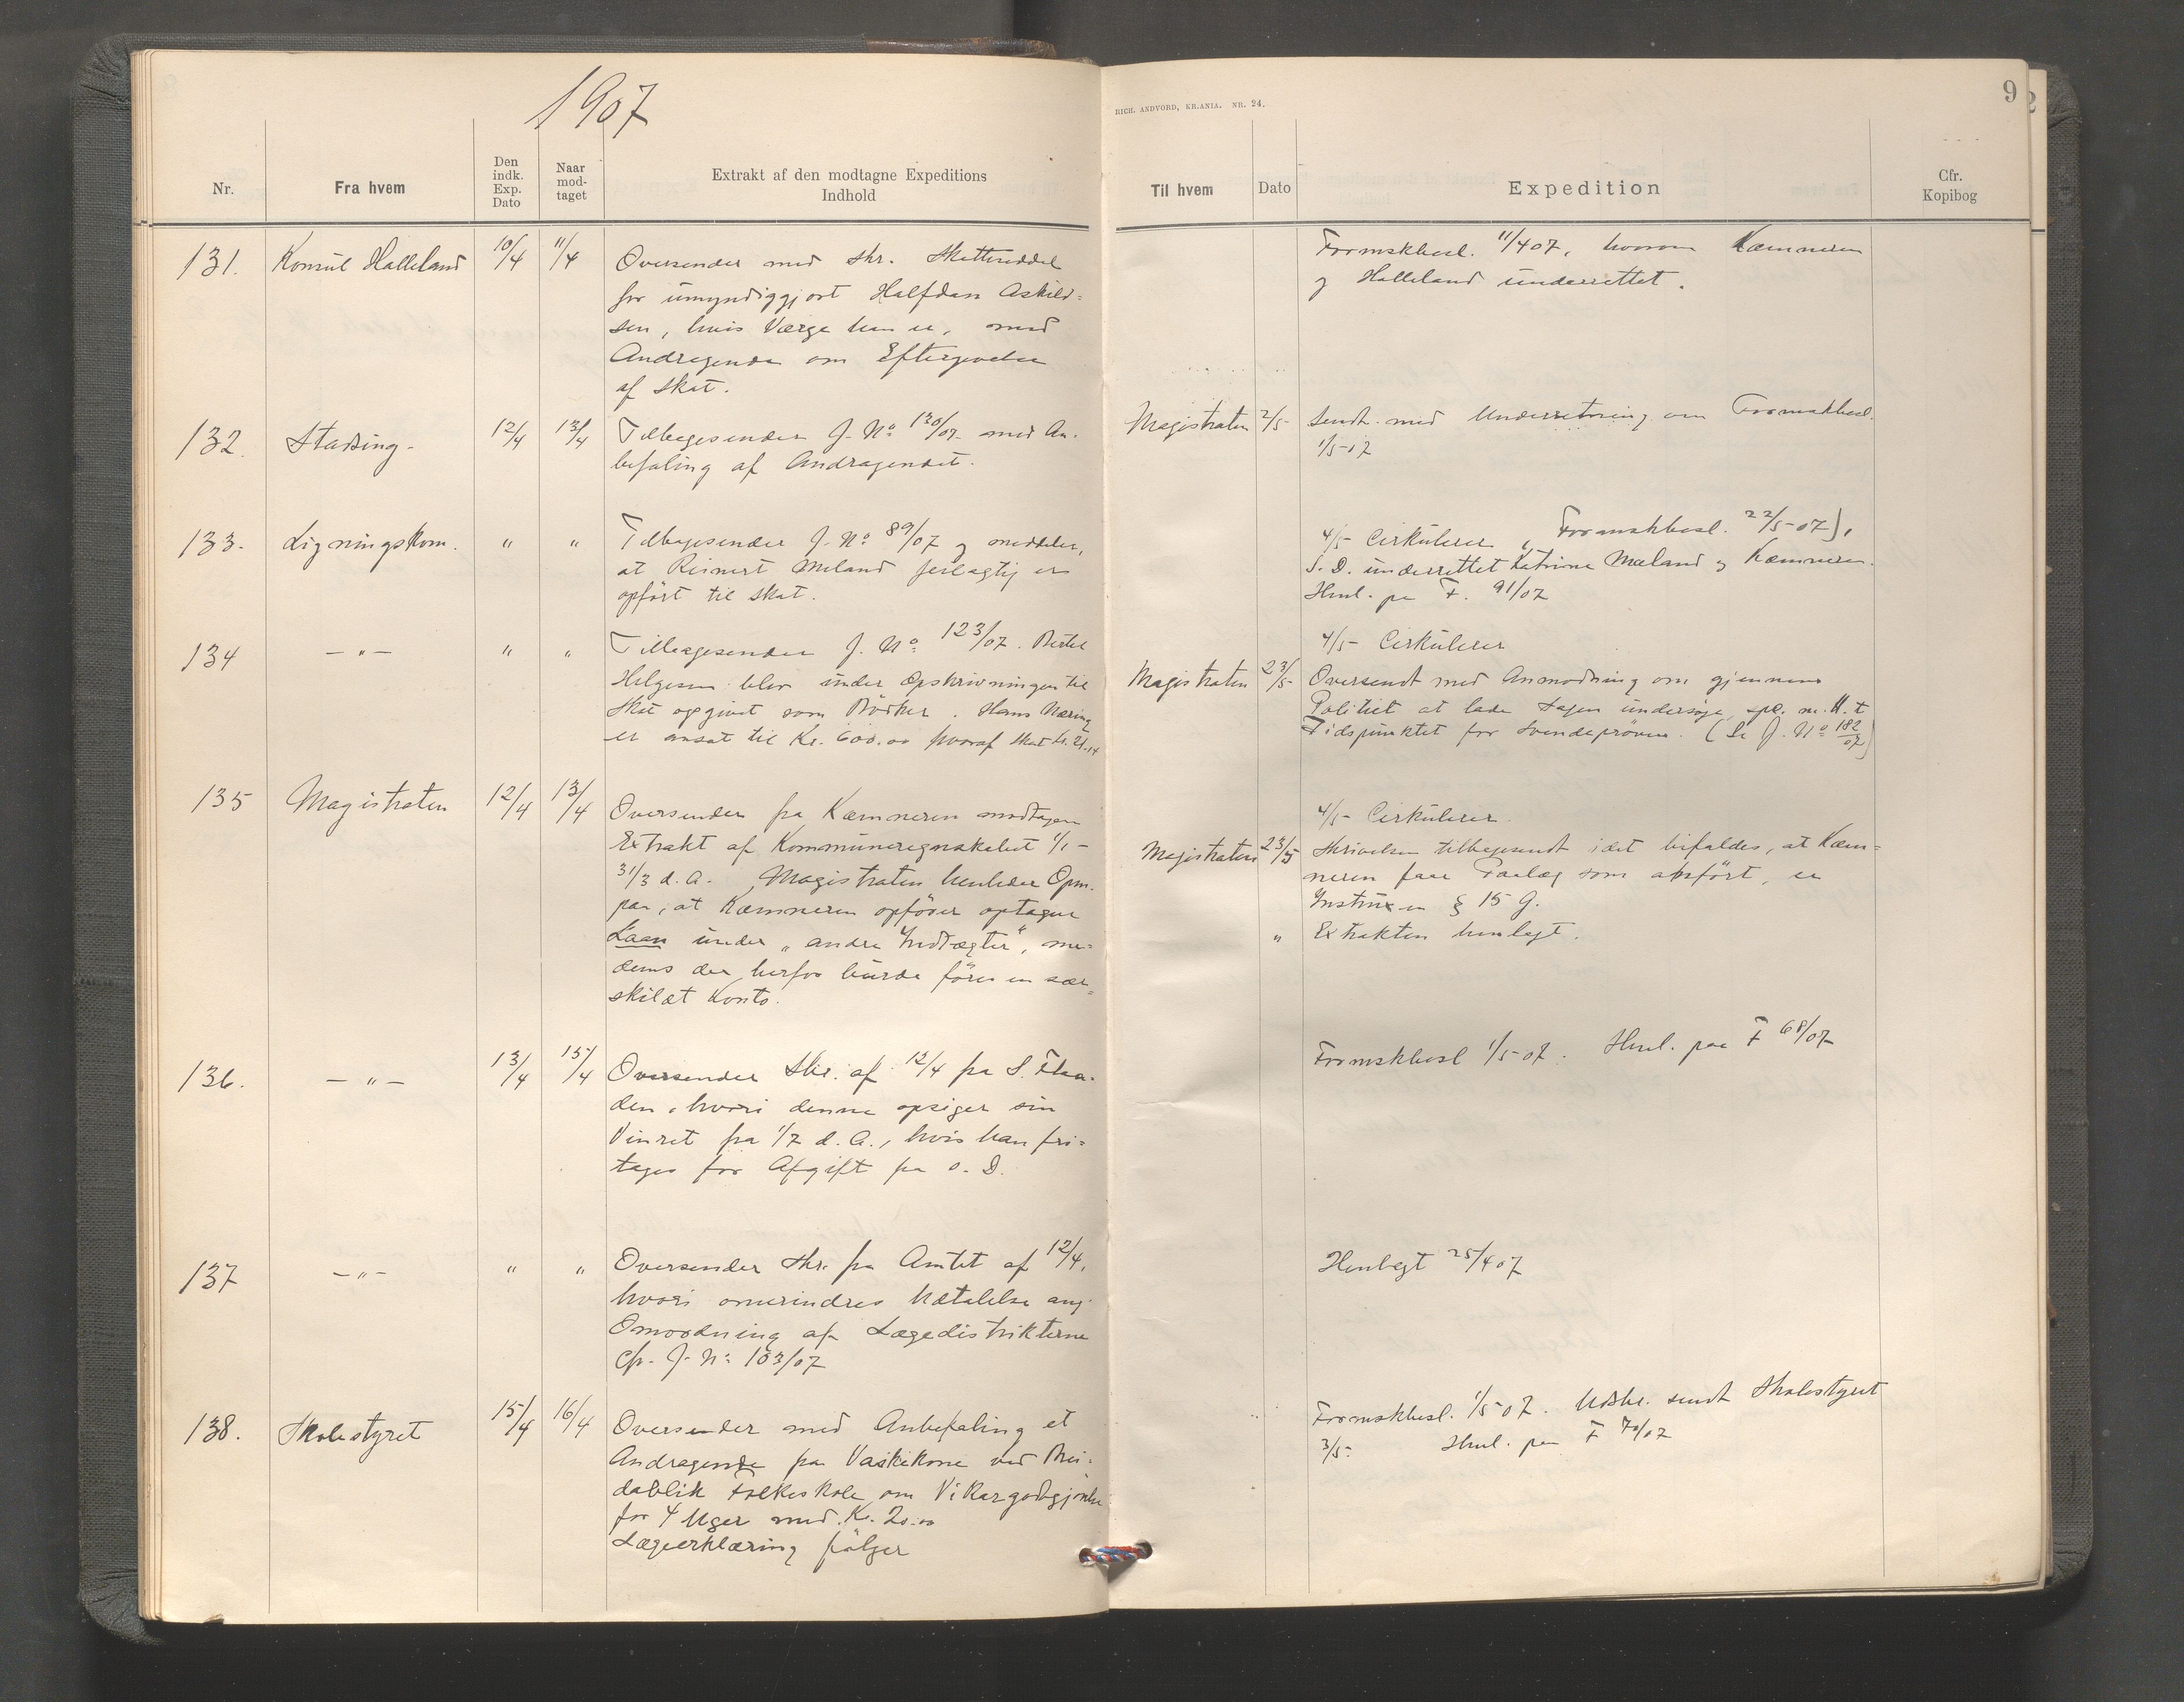 1907
RICH. ANDVORD, KR.ANIA. NR. 24.
9
Nr.
Fra hvem
Den
indk.
Exp.
Dato
Naar
mod-
taget
Extrakt af den modtagne Expeditions
Indhold
Til hvem
Dato
Expedition
Cfr.
Kopibog
131. Konsul Halleland 10/4 11/4 Oversender med Skr. Skatteseddel
for umyndiggjort Halfdan Askild=
sen, hvis Værge han er, med
Andragende om Eftergivelse
af Skat.
Formskbesl. 11/4 07, hvorom Kæmneren
og Halleland underrettet.
132. Stadsing- 12/4 13/4 Tilbagesender J. No 120/07 med An-
befaling af Andragendet.
Magistraten 2/5 Sendt med Underretning om Formskbesl.
1/5-07
133. Ligningskom. " " Tilbagesender J. No 89/07 og meddeler,
at Reinert Meland feilagtig er
opført til Skat.
4/5 Cirkulerer, Formskbesl. 22/5-07),
S. D. underrettet Katrine Mæland og Kæmneren.
Henl. pa F. 91/07
134 —"— " " Tilbagesender J. No 123/07. Bertel
Helgesen blev under Opskrivningen til
Skat opgivet som Bödker. Hans Næring
er ansat til Kr. 600.00 hvoraf Skat kr. 21.14
4/5 Cirkulerer
Magistraten 23/5 Oversendt med Anmodning om gjennem
Politiet at lade Sagen undersøge, spec. m. H. t.
Tidspunktet for Svendeprøven. (Se J. No 182/07)
135 Magistraten 12/4 13/4 Oversender fra Kæmneren modtagen
Extrakt af Kommuneregnskabet 1/1 -
31/3 d. A. Magistraten henleder Opm.
paa, at Kæmneren opfører optagne
Laan under "andre Indtægter", me=
dens der herfor burde føres en sær=
skildt Konto.
4/5 Cirkulerer.
Magistraten 23/5 Skrivelsen tilbagesendt idet bifaldes, at Kæm=
neren faar Paalæg som anført, er
Instruxen § 15 G.
" Extrakten henlagt.
136. —"— 13/4 15/4 Oversender Skr. af 12/4 fra S. Flaa-
den, hvori denne opsiger sin
Vinret fra 1/7 d. A., hvis han fri=
tages for Afgift fra s. D.
Formskbesl 1/5-07. Henl. paa F 68/07
137 —"— " " Oversender Skr. fra Amtet af 12/4,
hvori omerindres Udtalelse ang.
Omordning af Lægedistrikterne
Cfr. J. No 103/07
Henlagt 25/4 07
138. Skolestyret 15/4 16/4 Oversender med Anbefaling et
Andragende fra Vaskekone ved Brei-
dablik Folkeskole om Vikargodtgjørelse
for 4 Uger med Kr. 20.00
Lægeerklæring følger
Formskbesl. 1/5 07. Udskr. sendt Skolestyret
3/5. Henl. paa F 70/07